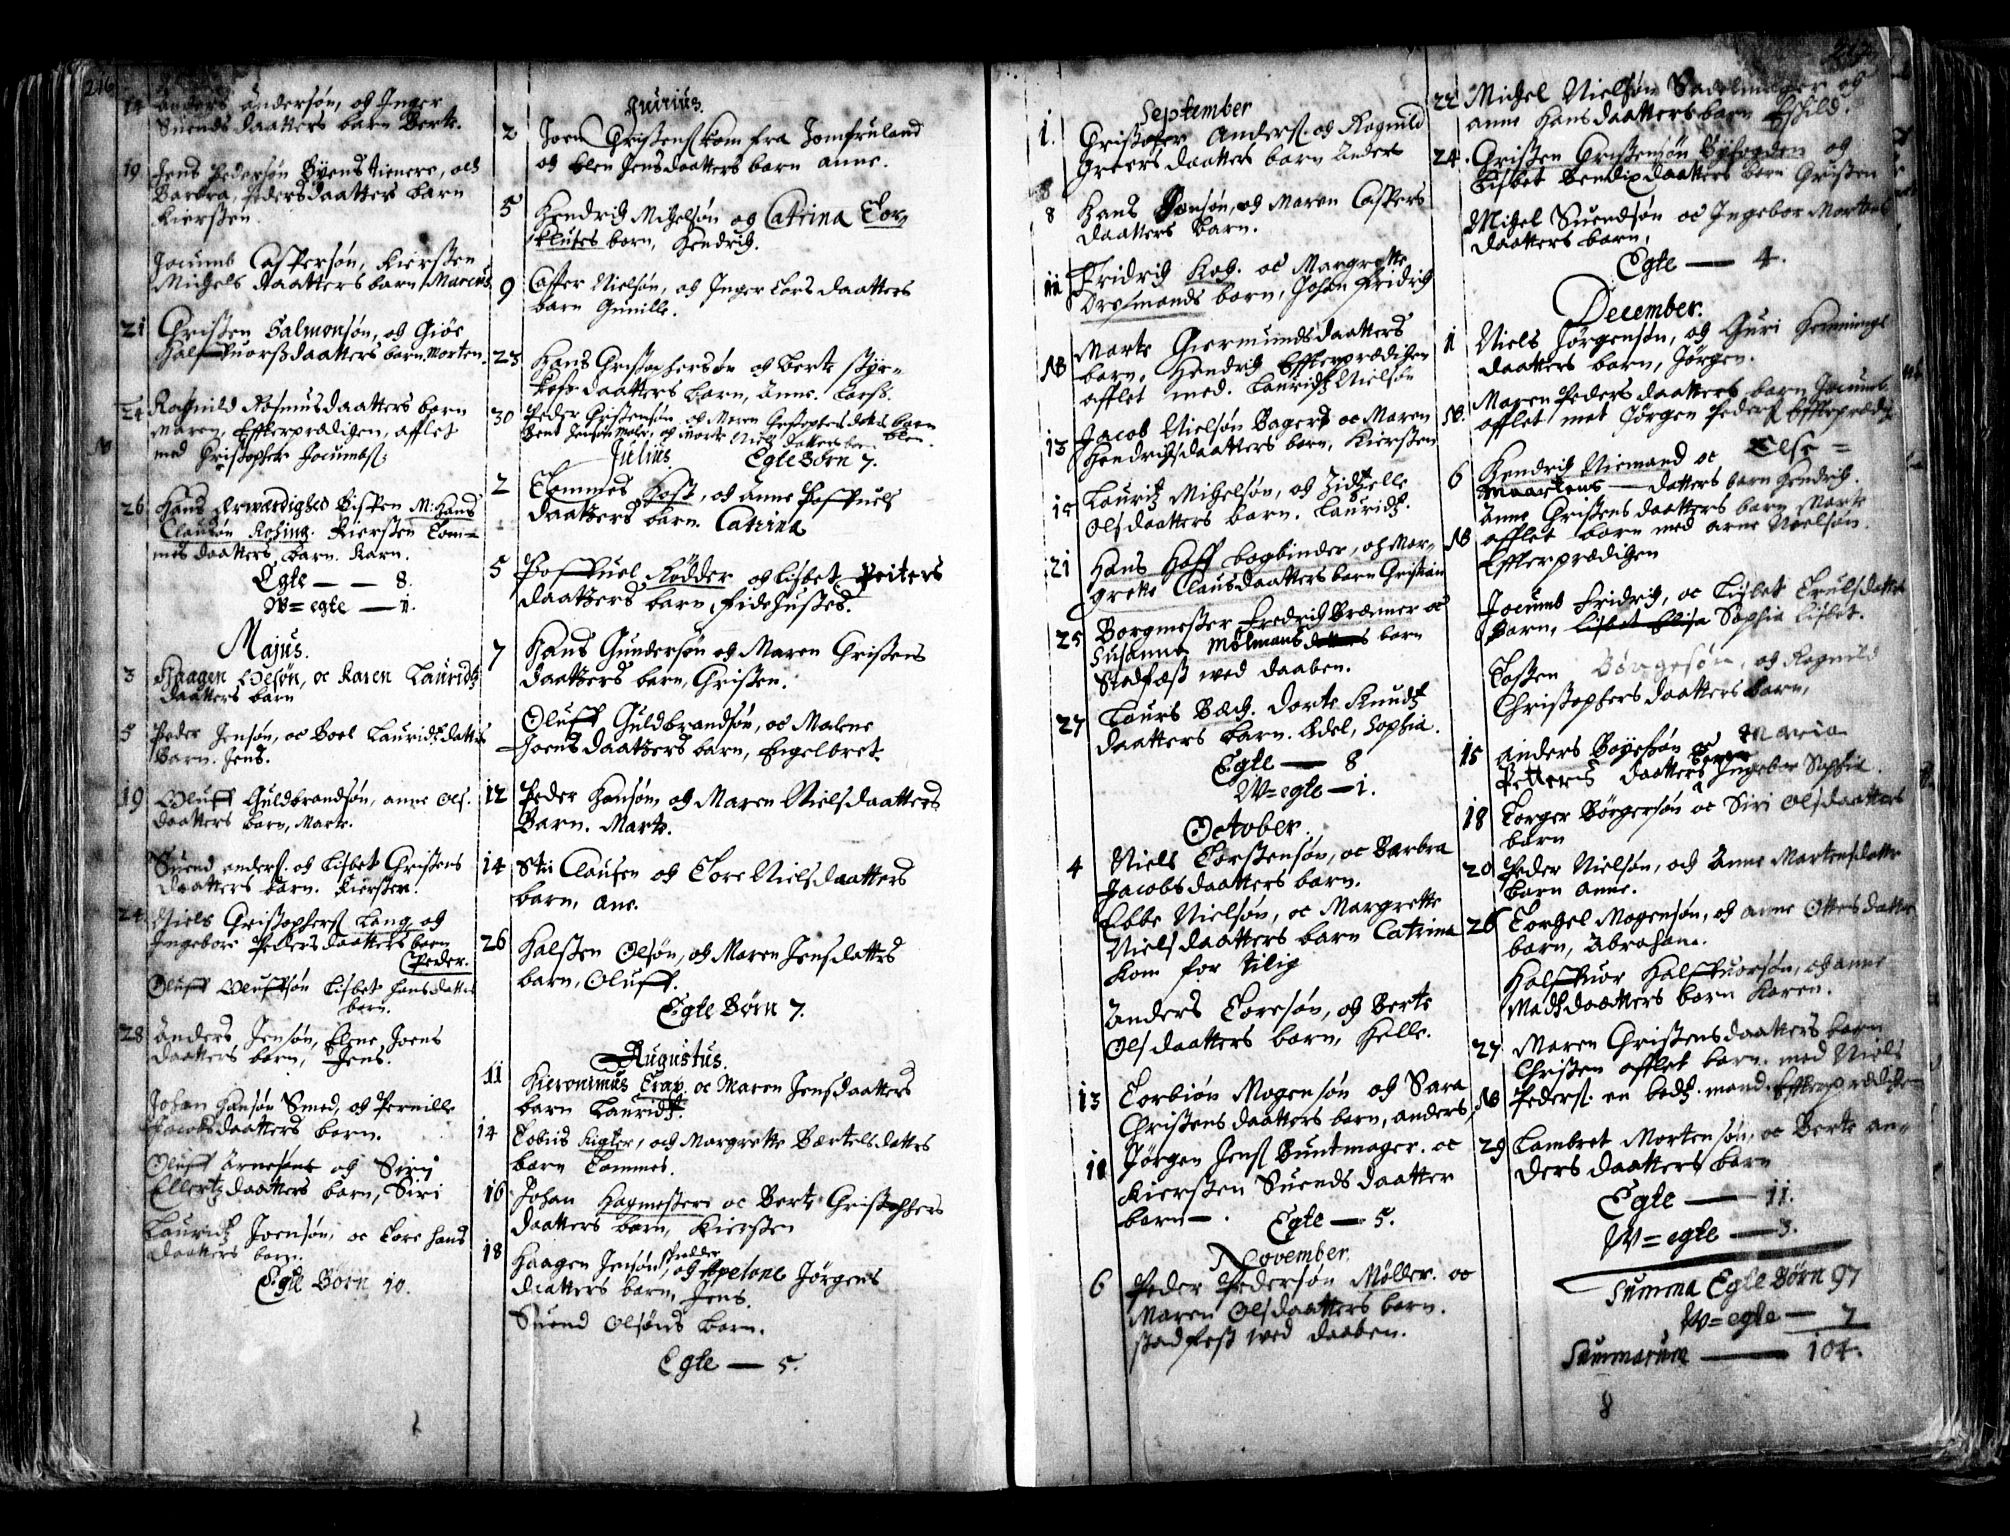 216
14 Anders Andersøn, og Inger
Suends daatters barn Berte.
19 Jens Pedersøn Byens tienere, och
Barbra, Peders daatters barn
Kiersten.
Jocumb Caspersøn, Kiersten
Michels daatters barn Marcus
21 Christen Salmonsøn, og Giøe
Halffuorsdaatters barn Morten.
24 Ragnild Rasmusdaatters barn
NB Maren, Effterpradigen, afflet
med Christopher Jocumbs:
26 Hans Ærwærdighed Bispen M: Hans
Clausøn Rosing. Kiersten Tom=
mis daatters barn. Karn.
Egte — — 8.
W=egte — 1.
Majus.
3 Haagen Olsøn, oc Karen Lauridtz
daatters barn
5 Peder Jensøn, oc Boel Lauridtz datters
Barn. Jens.
19 Oluff Guldbrandsøn, anne Ols.
daatters barn, Marte.
Suend anders. og Lisbet Christens
daatters barn. Kiersten.
24 Niels Christophers Lang og
Ingebore Peders daatters barn
Peder.
Oluff Oluffsøn Lisbet hans datters
barn.
28 Anders Jensøn, Elene Joens
daatters barn, Jens.
Johan Hansøn Smed, og Pernille
Jacobsdaatters barn.
Oluff Arnesøns og Sirj
Ellertz daatters barn, Siri
Lauridtz Joensøn, oc Tore Hans
daatters barn.
Egte Børn 10.
Junius.
2 Joen Christens kom fra Jomfruland
og Elen Jensdaatters barn anne.
5 Hendrich Michelsøn og Catrina Tor=
kluses barn, Hendrich.
9 Casper Nielsøn, og Inger Lars daatters
barn Gunille.
23 Hans Christophersøn og Berte Styr=
kors daatters barn, Anne.
30 Peder Christensøn, og Maren Christophers dotters barn
Elen.
Julius. Egte Børn 7.
2 Tommes Host, og Anne Paffuels
daatters barn. Catrina
5 Paffuel Rødder og Lisbet Peiters
daatters barn, Fide Justes.
7 Hans Gundersøn og Maren Christens
daatters barn, Christen.
Oluff Guldbrandsøn, oc Malene
Joens daatters barn, Engelbret.
12 Peder Hansøn og Maren Nielsdaatters
Barn. Marte.
14 Sti Clausen og Tore Nielsdaatters
barn, Ane.
26 Halsten Olsøn, og Maren Jensdatters
barn, Oluff.
Egte Børn 7.
Augustus.
11 Hieronimus Trap, oc Maren Jensdaatters
barn Lauridtz.
14 Tobiis Rigter, och Margrette Bærtelsdatters
barn Tommes.
16 Johan Hagmestere oc Berte Christophers
daatters barn, Kiersten
18 Haagen Jensøn, og Apelone Jørgens
daatters barn, Jens.
Suend Olsøns barn.
Egte — 5.
September
1. Christoffer Anders. og Ragnild
Greers daatters barn Anders
8
8 Hans Jonsøn, og Maren Caspers
daatters Barn.
11 Fridrich Koch. oc Margrette
Orslmands barn, Johan Fridrich
Marte Giermundsdaatters
NB barn, Hendrich Effterprædigen
afflet med. Lauridtz Nielsøn
13 Jacob Nielsøn Bagers oc Maren
Hendrichsdaatters barn, Kiersten
15 Lauritz Michelsøn, og Zidtzelle
Olsdaatters barn. Lauridtz.
21 Hans Hoff bogbinder, og Mar=
grete Clausdaatters barn Christian
25 Borgmester Fredrich Brænner oc
Susanna Mølmans barn
Stadfæst wed daaben.
27 Laurs Bæch. Dorte Knudtz
daatters barn. Edel, Sophia.
Egte — 8
W=egte — 1.
October.
4 Niels Torstensøn, oc Barbra
Jacobsdaatters barn.
Ebbe Nielsøn, oc Margrette
Niels daatters barn Catrina
kom for tilig
Anders Toresøn, og Berte
Ols daatters barn, Helle.
13 Torbiøn Mogensøn og Sara
Christens daatters barn, anders
18 Jørgen Jens Buntmager. oc
Kiersten Suends daatter
barn — . Egte — 5.
November.
6 Peder Pedersøn Møller. oc
Maren Olsdaatters barn.
stadfest wed daaben.
22 Michel Nielsøn Sadelmager og
anne Hans daatters barn Eschild.
24. Christen Christensøn Byfogden og
Lisbet Bendixdaatters barn Christen
Michel Suendsøn oc Ingebor Mortens
daatters barn.
Egte — 4.
December.
11 Niels Jørgensøn, og Guri Hennings
daatters barn, Jørgen.
Maren Peders daatters barn Jocumb
NB. afflet met Jørgen Peders Effterprædig
6 Hendrich Niemand oc Else =
Maartens — datters barn Hendrich.
Anne Christens daatters barn Marte
NB afflet barn med Arne Noelsøn.
Effterprædigen
Jocumb Fridrich, oc Lisbet Truls datters
Barn, Lisbet Elisa Sophia Lisbet.
Tosten Børgesøn, og Ragnild
Christophers daatters barn,
15 Anders Boyesøn oc Maria
Petters daatters barn Ingebor Sophia.
18 Torger Børgersøn oc Siri Olsdaatters
barn
20 Peder Nielsøn, och Anne Martensdatter
barn Anne.
26 Torchel Mogensøn, og Anne Ottes datter
barn, Abraham.
Halffuor Halffuorsøn, og Anne
Madtz daatters barn Karen.
27 Maren Christensdaatters barn
Christen afflet barn. med Niels
NB Peders. en baadtz mand Effterprædigen
29 Lambret Mortensøn, oc Berte an=
ders daatters barn
Egte — 11.
W=egte — 3.
Summa Egte Børn 97
W=egte — 7
Summarum — 104.
8